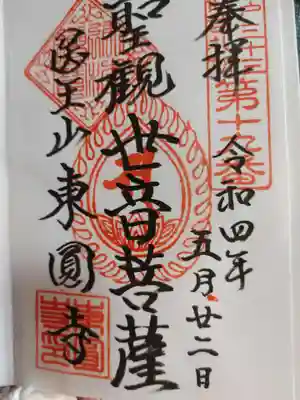 奉拝
令和四年
五月廿二日
聖觀世音菩薩
醫王山東圓寺